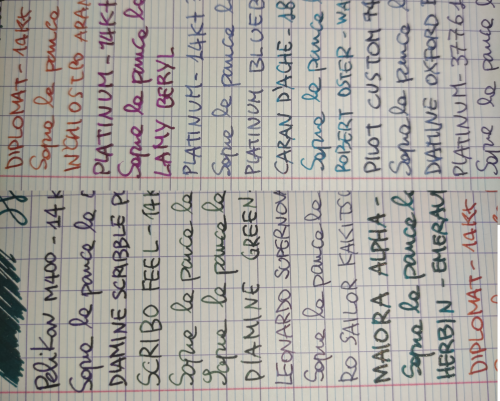 Pelikan M400 - 14K
Sopra la panca la c
DIAMINE SCRIBBLE P
SCRIBO FEEL - 14K
Sopra la panca la
Sopra la panca la
DIAMINE GREEN
LEONARDO SUPERNOVA
Sopra la panca la
SAILOR
MAIORA ALPHA -
Sopra la panca la
HERBIN - EMERAU
DIPLOMAT - 14Kt
DIPLOMAT - 14Kt
Sopra la panca la
INCHIOSTRO ARAN
PLATINUM - 14Kt
Sopra la panca la
LAMY BERYL
PLATINUM - 14Kt
Sopra la panca la
PLATINUM BLUEB
CARAN D'ACHE - 18
Sopra la panca la
ROBERT OSTER - WA
PILOT CUSTOM 74
Sopra la panca la
DIAMINE OXFORD B
PLATINUM - 3776
Sopra la panca la